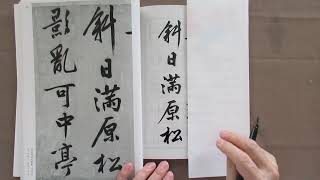 斜日满原松
影亂可中亭
斜日满原松